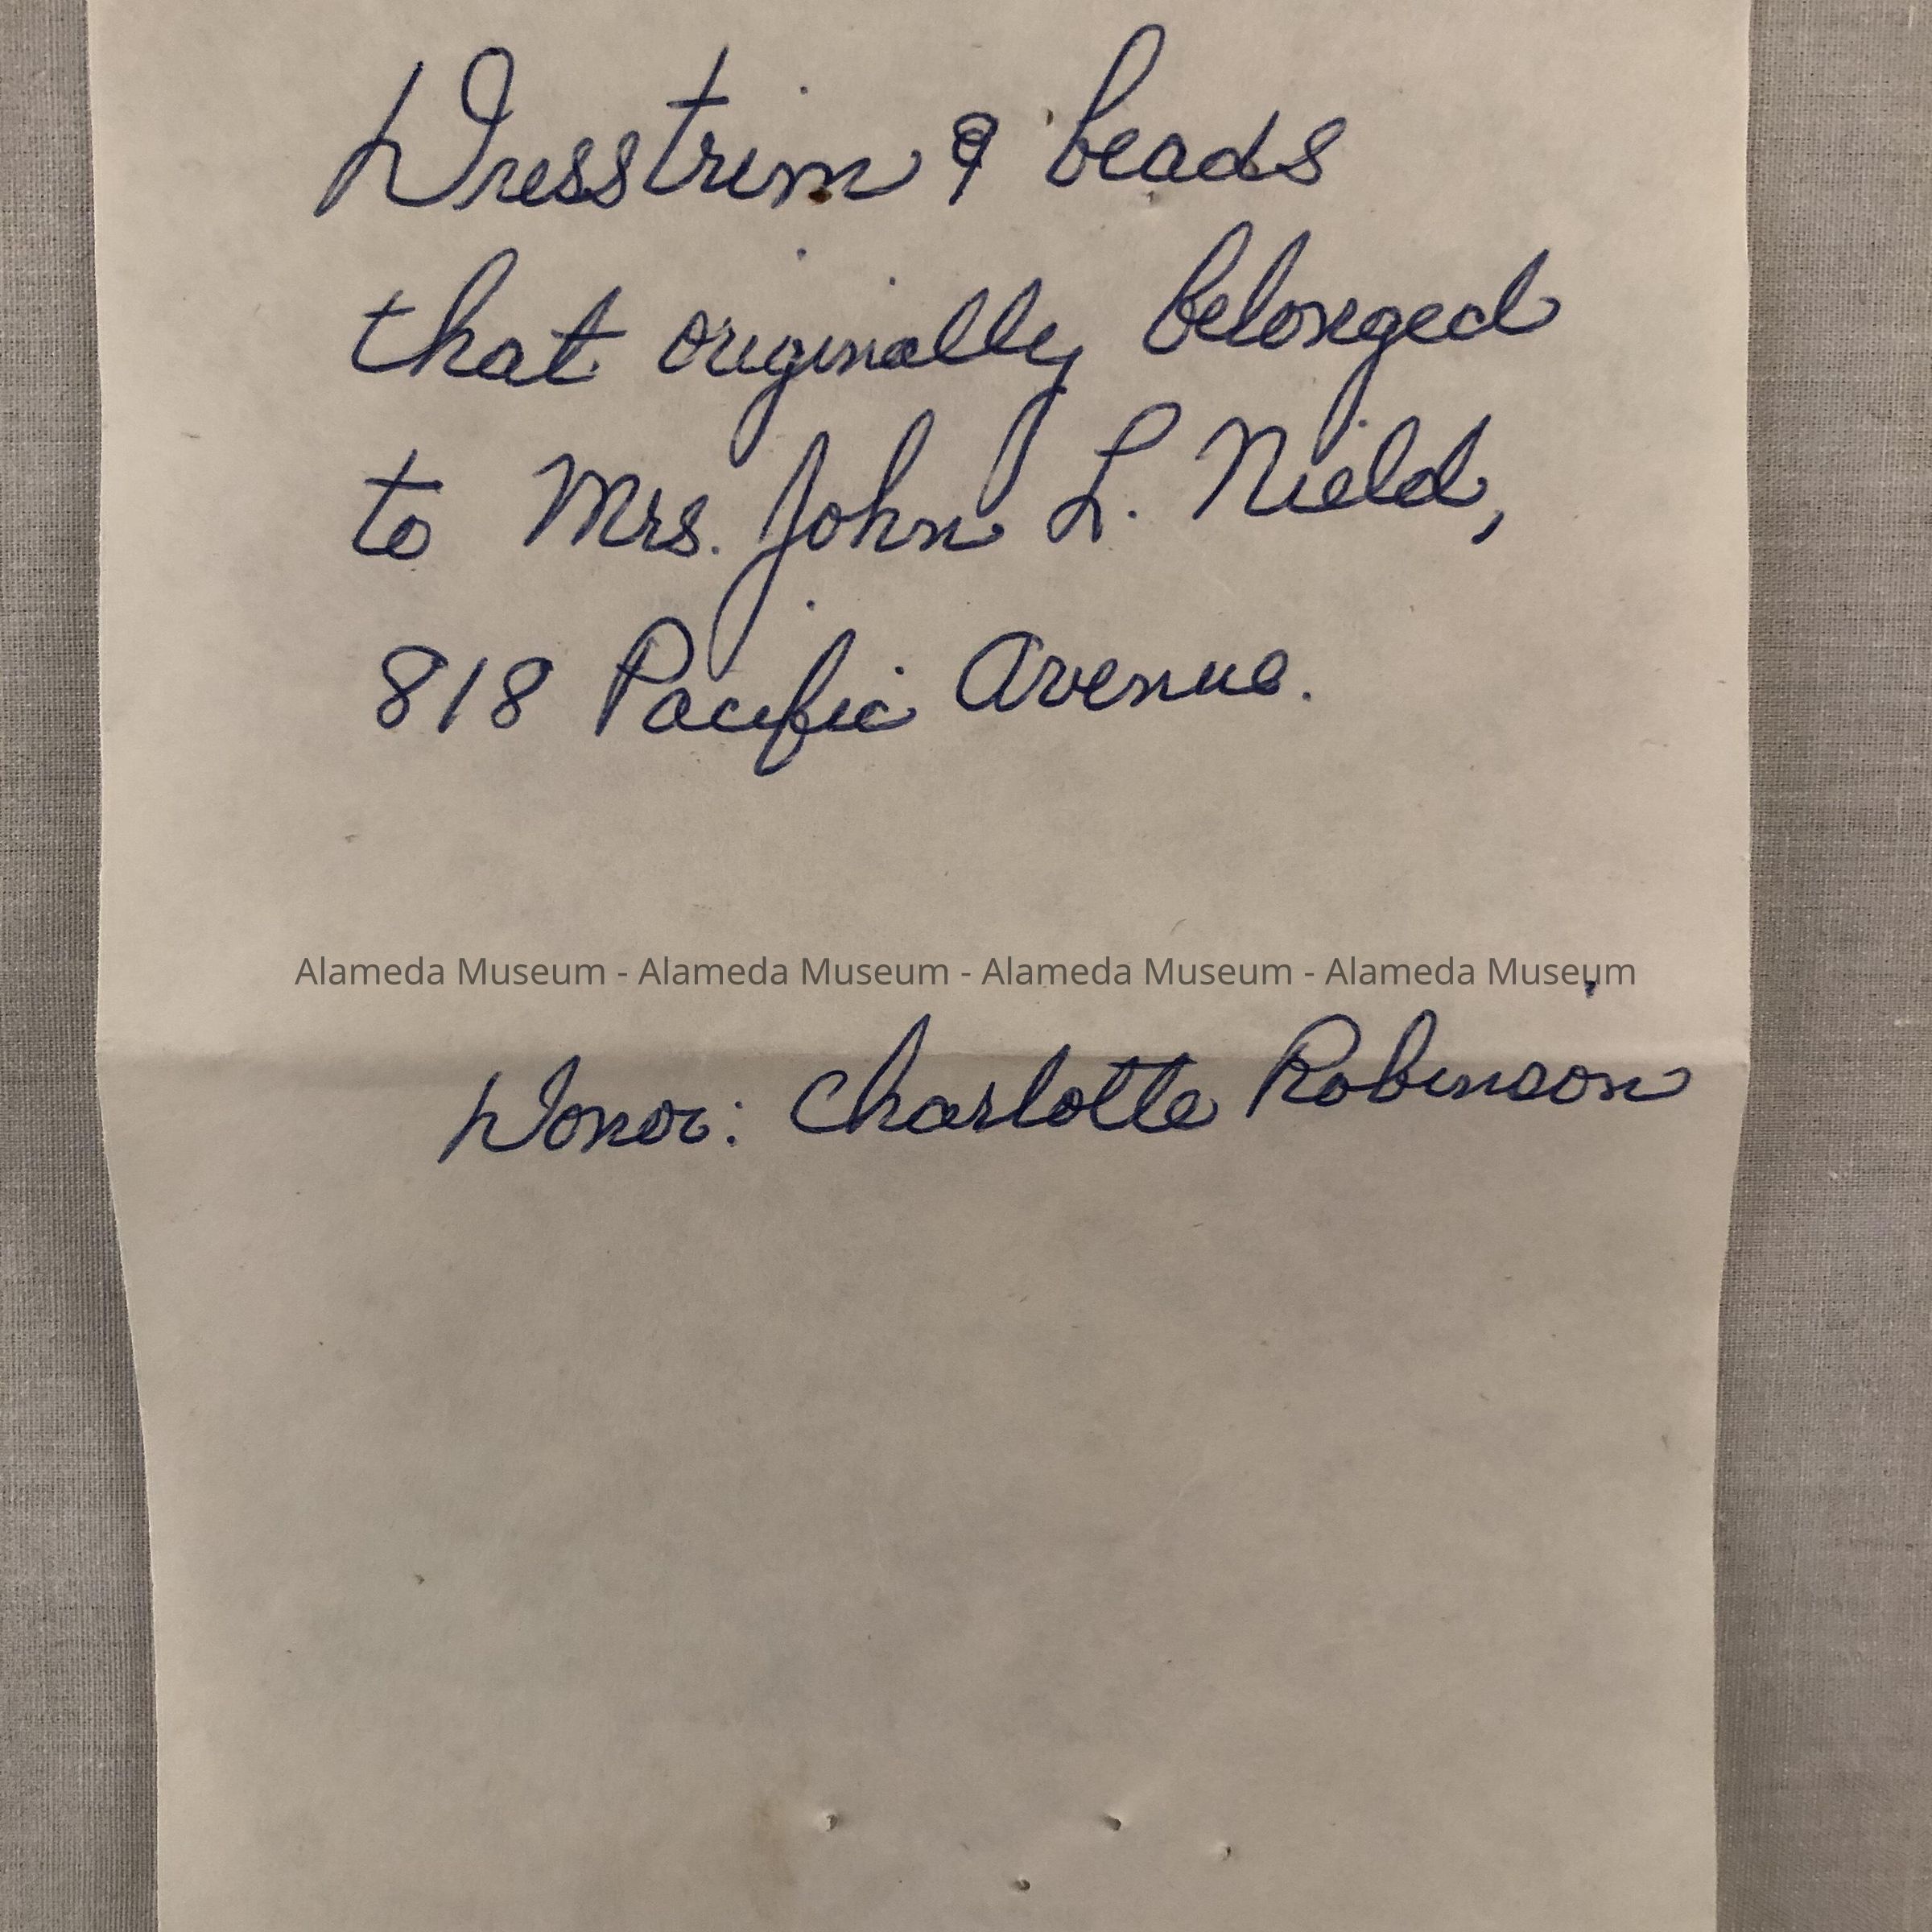 Dress trim & beads
that originally belonged
to Mrs. John L. Nield,
818 Pacific Avenue.
Alameda Museum - Alameda Museum - Alameda Museum - Alameda Museum
Donor: Charlotte Robinson